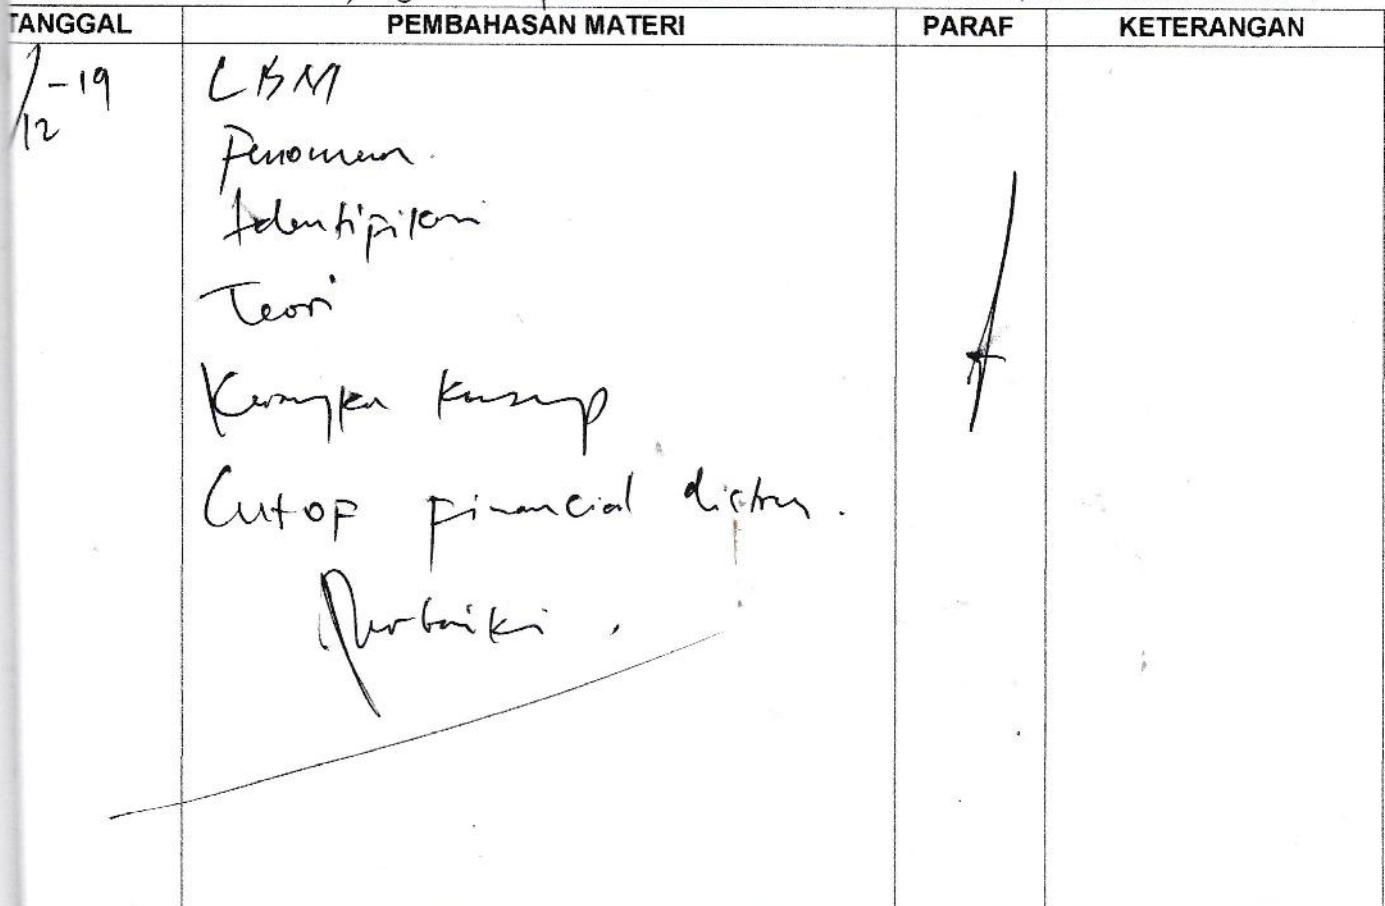 TANGGAL PEMBAHASAN MATERI PARAF KETERANGAN
/12 -19 LBM
Fenomena.
Identifikasi
Teori
Kerangka
Cutof financial distres.
Perbaiki.